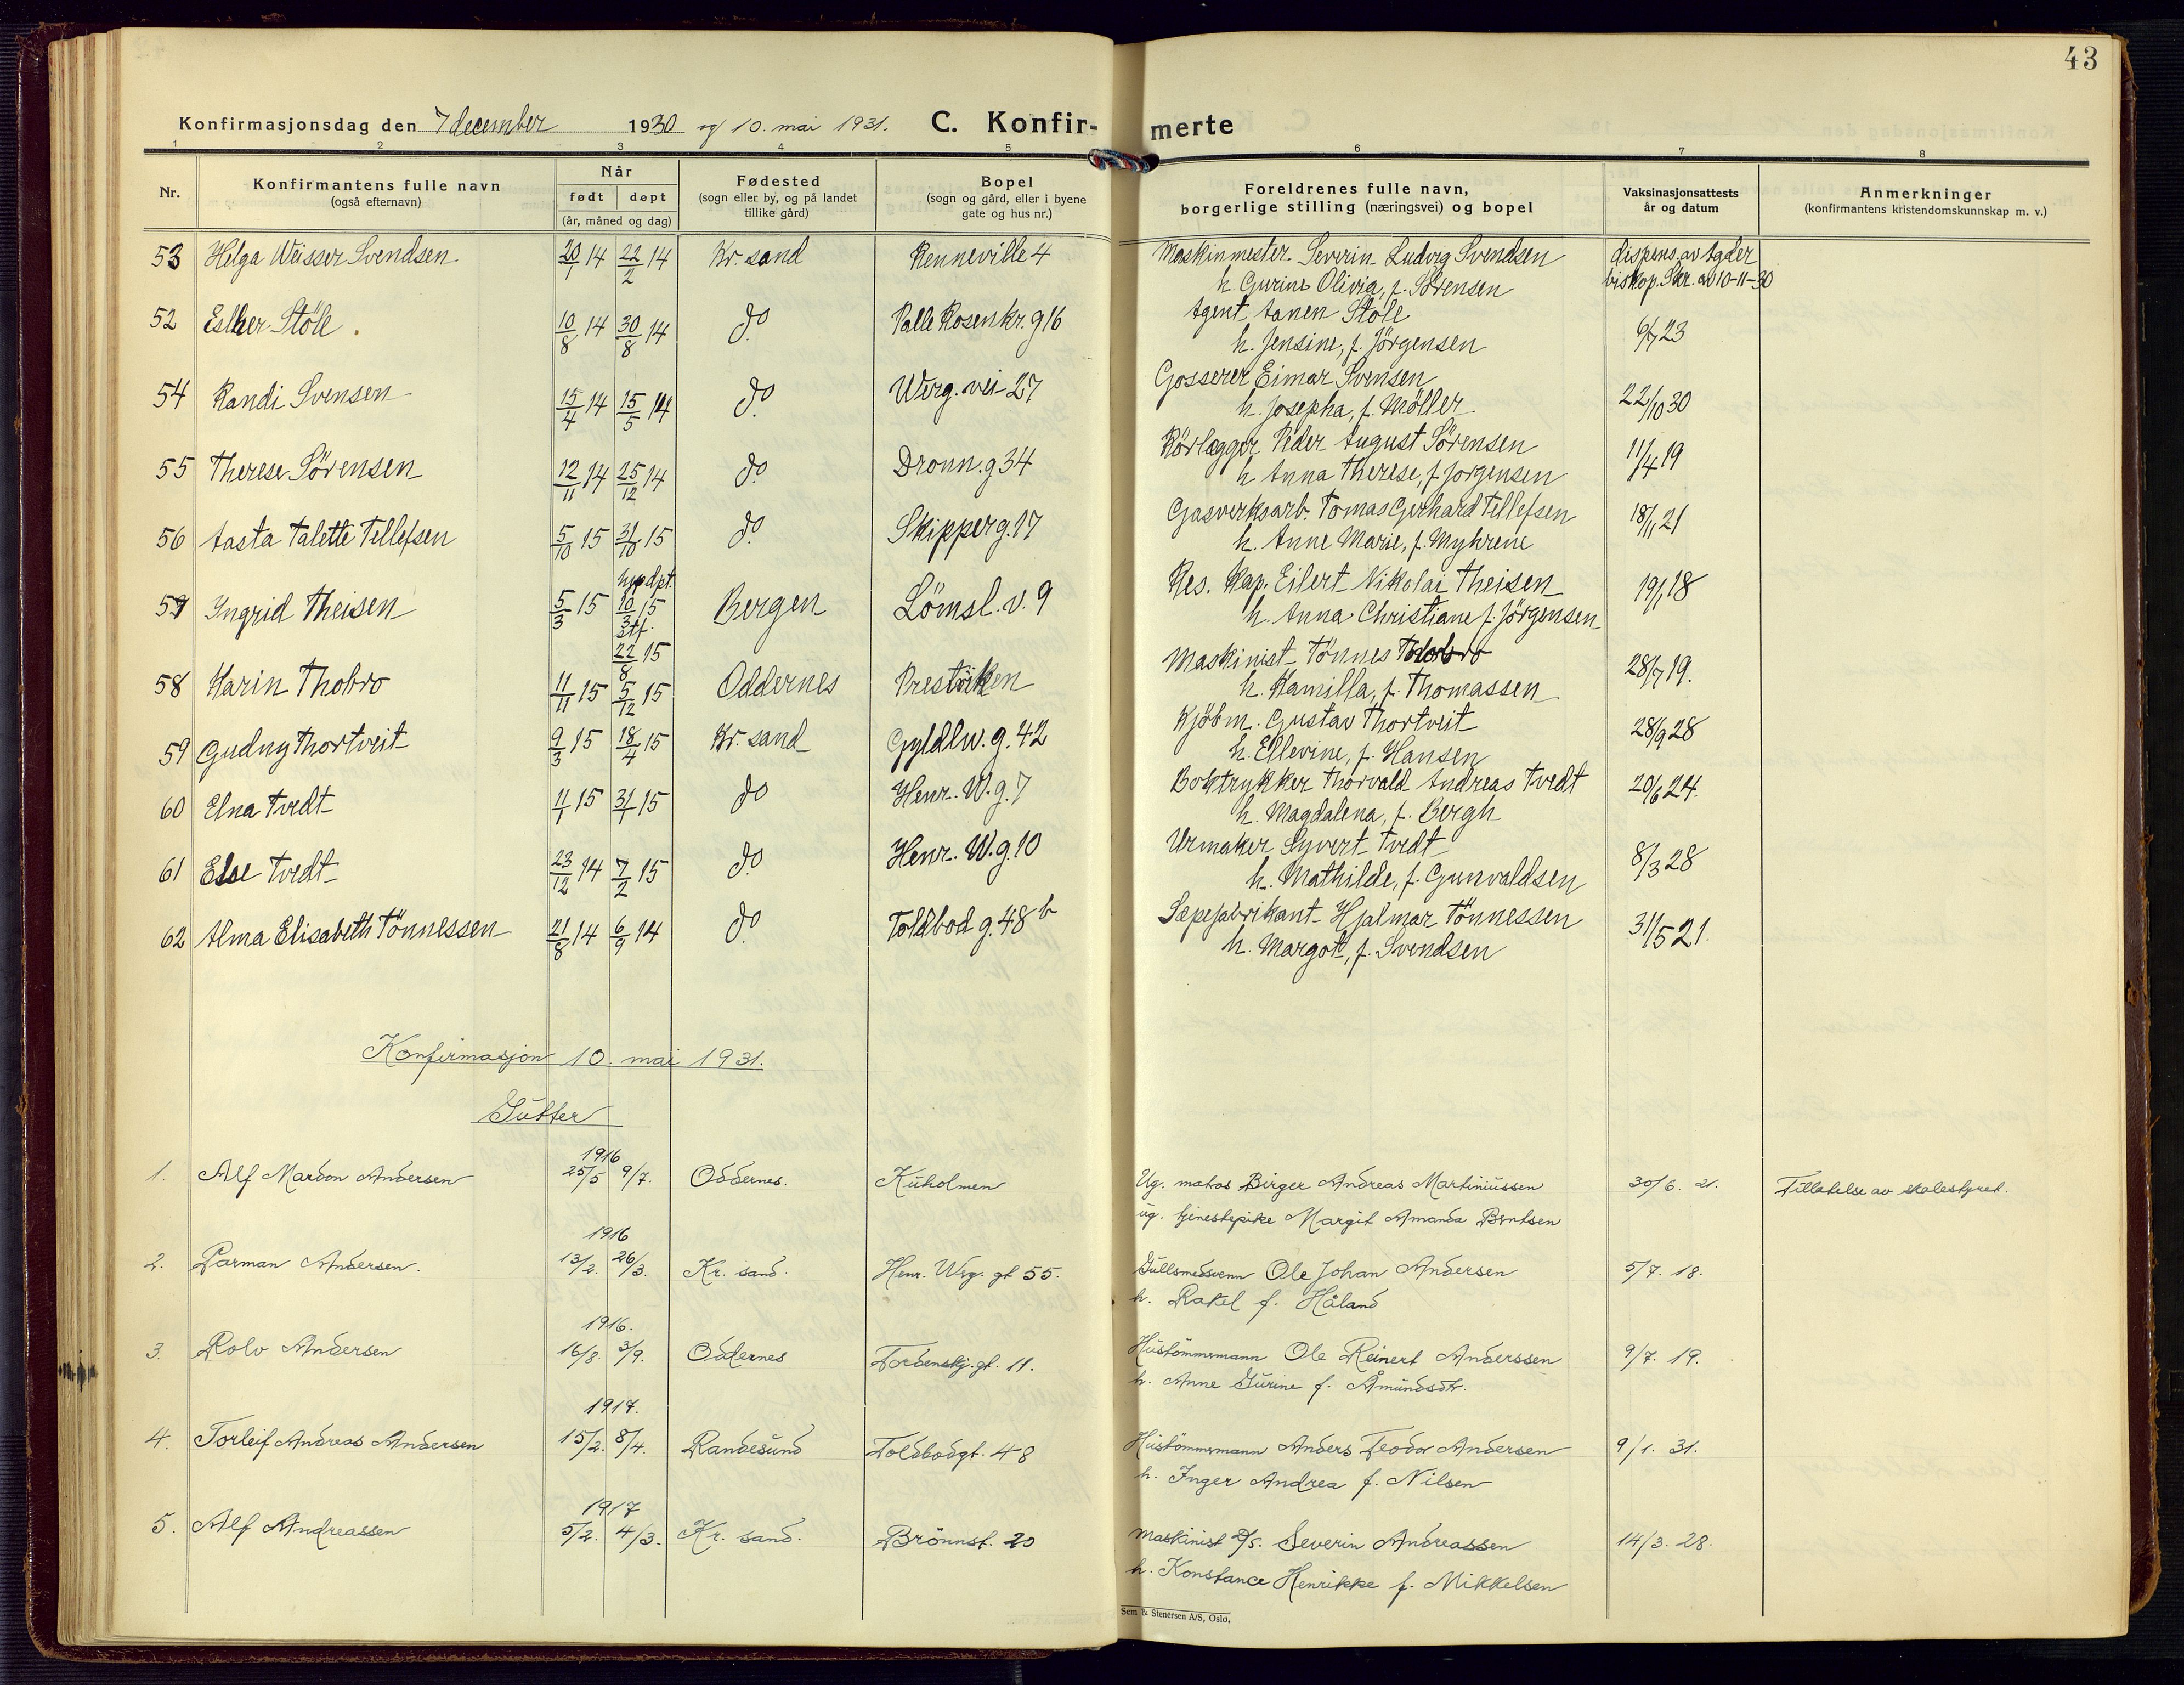 43
Konfirmasjonsdag den 7 december 1930 og 10. mai 1931. C. Konfir- merte
1 2 3 4 5 6 7 8
Nr. Konfirmantens fulle navn (også efternavn) Når født døpt (år, måned og dag) Fødested (sogn eller by, og på landet tillike gård) Bopel (sogn og gård, eller i byene gate og hus nr.) Foreldrenes fulle navn, borgerlige stilling (næringsvei) og bopel Vaksinasjonsattests år og datum Anmerkninger (konfirmantens kristendomskunnskap m. v.)
53 Helga Weisser Svendsen 20/1 14 22/2 14 Kr. sand Renneville 4 Maskinmester Severin Ludvig Svendsen dispens. av Agder
h. Gurine Olivia, f. Sörensen biskop. Skr. av 10-11-30
52 Esther Stöle. 10/8 14 30/8 14 do Palle Rosenkr. g 16 Agent Aanen Stöle 6/7 23
h. Jensine, f. Jörgensen
54 Randi Svensen 15/4 14 15/5 14 do Werg. vei 27 Gosserer Eimar Svensen 22/10 30
h. Josepha, f. Möller.
55 Therese Sörensen 12/11 14 25/12 14 do Dronn. g 34 Rörlægger Peder August Sörensen 11/4 19
h Anna Therese, f Jorgensen
56 Aasta Talette Tellefsen 5/10 15 31/10 15 do Skipperg. 17 Gasverksarb. Tomas Gerhard Tellefsen 18/11 21
h. Anne Marie, f. Myhrene
57 Ingrid Theisen 5/3 15 hjpdpt. 10/3 15 stf. 22/8 15 Bergen Lömsl. v. 9 Res. Kap. Eilert Nikolai Theisen 19/1 18
h. Anna Christiane f. Jörgensen
58 Karin Thobro 11/11 15 5/12 15 Oddernes Prestviken Maskinist Tönnes Thobro 28/7 19.
h. Kamilla, f. Thomassen
59 Gudny Thortveit 9/3 15 18/4 15 Kr. sand Gyldlw. g. 42 Kjöbm. Gustav Thortveit 28/9 28
h. Ellevine, f. Hansen
60 Elna Tvedt 11/1 15 31/1 15 do Henr. W. g. 7 Boktrykker Thorvald Andreas Tvedt 20/6 24.
h. Magdalena, f. Bergh
61 Else Tvedt 23/12 14 7/2 15 do Henr. W. g. 10 Urmaker Syvert Tvedt 8/3 28
h. Mathilde, f. Gunvaldsen
62 Alma Elisabeth Tönnessen 21/8 14 6/9 14 do Toldbod g. 48 b Sæpefabrikant Hjalmar Tönnessen 31/5 21.
h. Margot, f. Svendsen
Konfirmasjon 10. mai 1931.
Gutter
1916
1. Alf Mardon Andersen 25/5 9/7. Oddernes. Kuholmen Ug. matros Birger Andreas Martiniussen 30/6. 21. Tillatelse av skolestyret.
ug. tjenestepike Margit Amanda Berntsen
1916
2. Parman Andersen. 13/2. 26/3. Kr. sand. Henr. Werg. gt 55. Gullsmedsvenn Ole Johan Andersen 5/7. 18.
h. Rakel f. Håland
1916.
3. Rolv Andersen 16/8. 3/9. Oddernes Tordenskj. gt. 11. Hustömmermann Ole Reinert Anderssen 9/7. 19.
h. Anne Gurine f. Åmundsdtr.
1917.
4. Torleif Andreas Andersen 15/2. 8/4. Randesund Toldbodgt. 48 Hustömmermann Anders Teodor Andersen 9/1. 31.
h. Inger Andrea f. Nilsen
1917
5. Alf Andreassen 5/2. 4/3. Kr. sand. Brönnst. 20 Maskinist D/S. Severin Andreassen 14/3. 28.
h. Konstance Henrikke f. Mikkelsen
Sem & Stenersen A/S, Oslo.